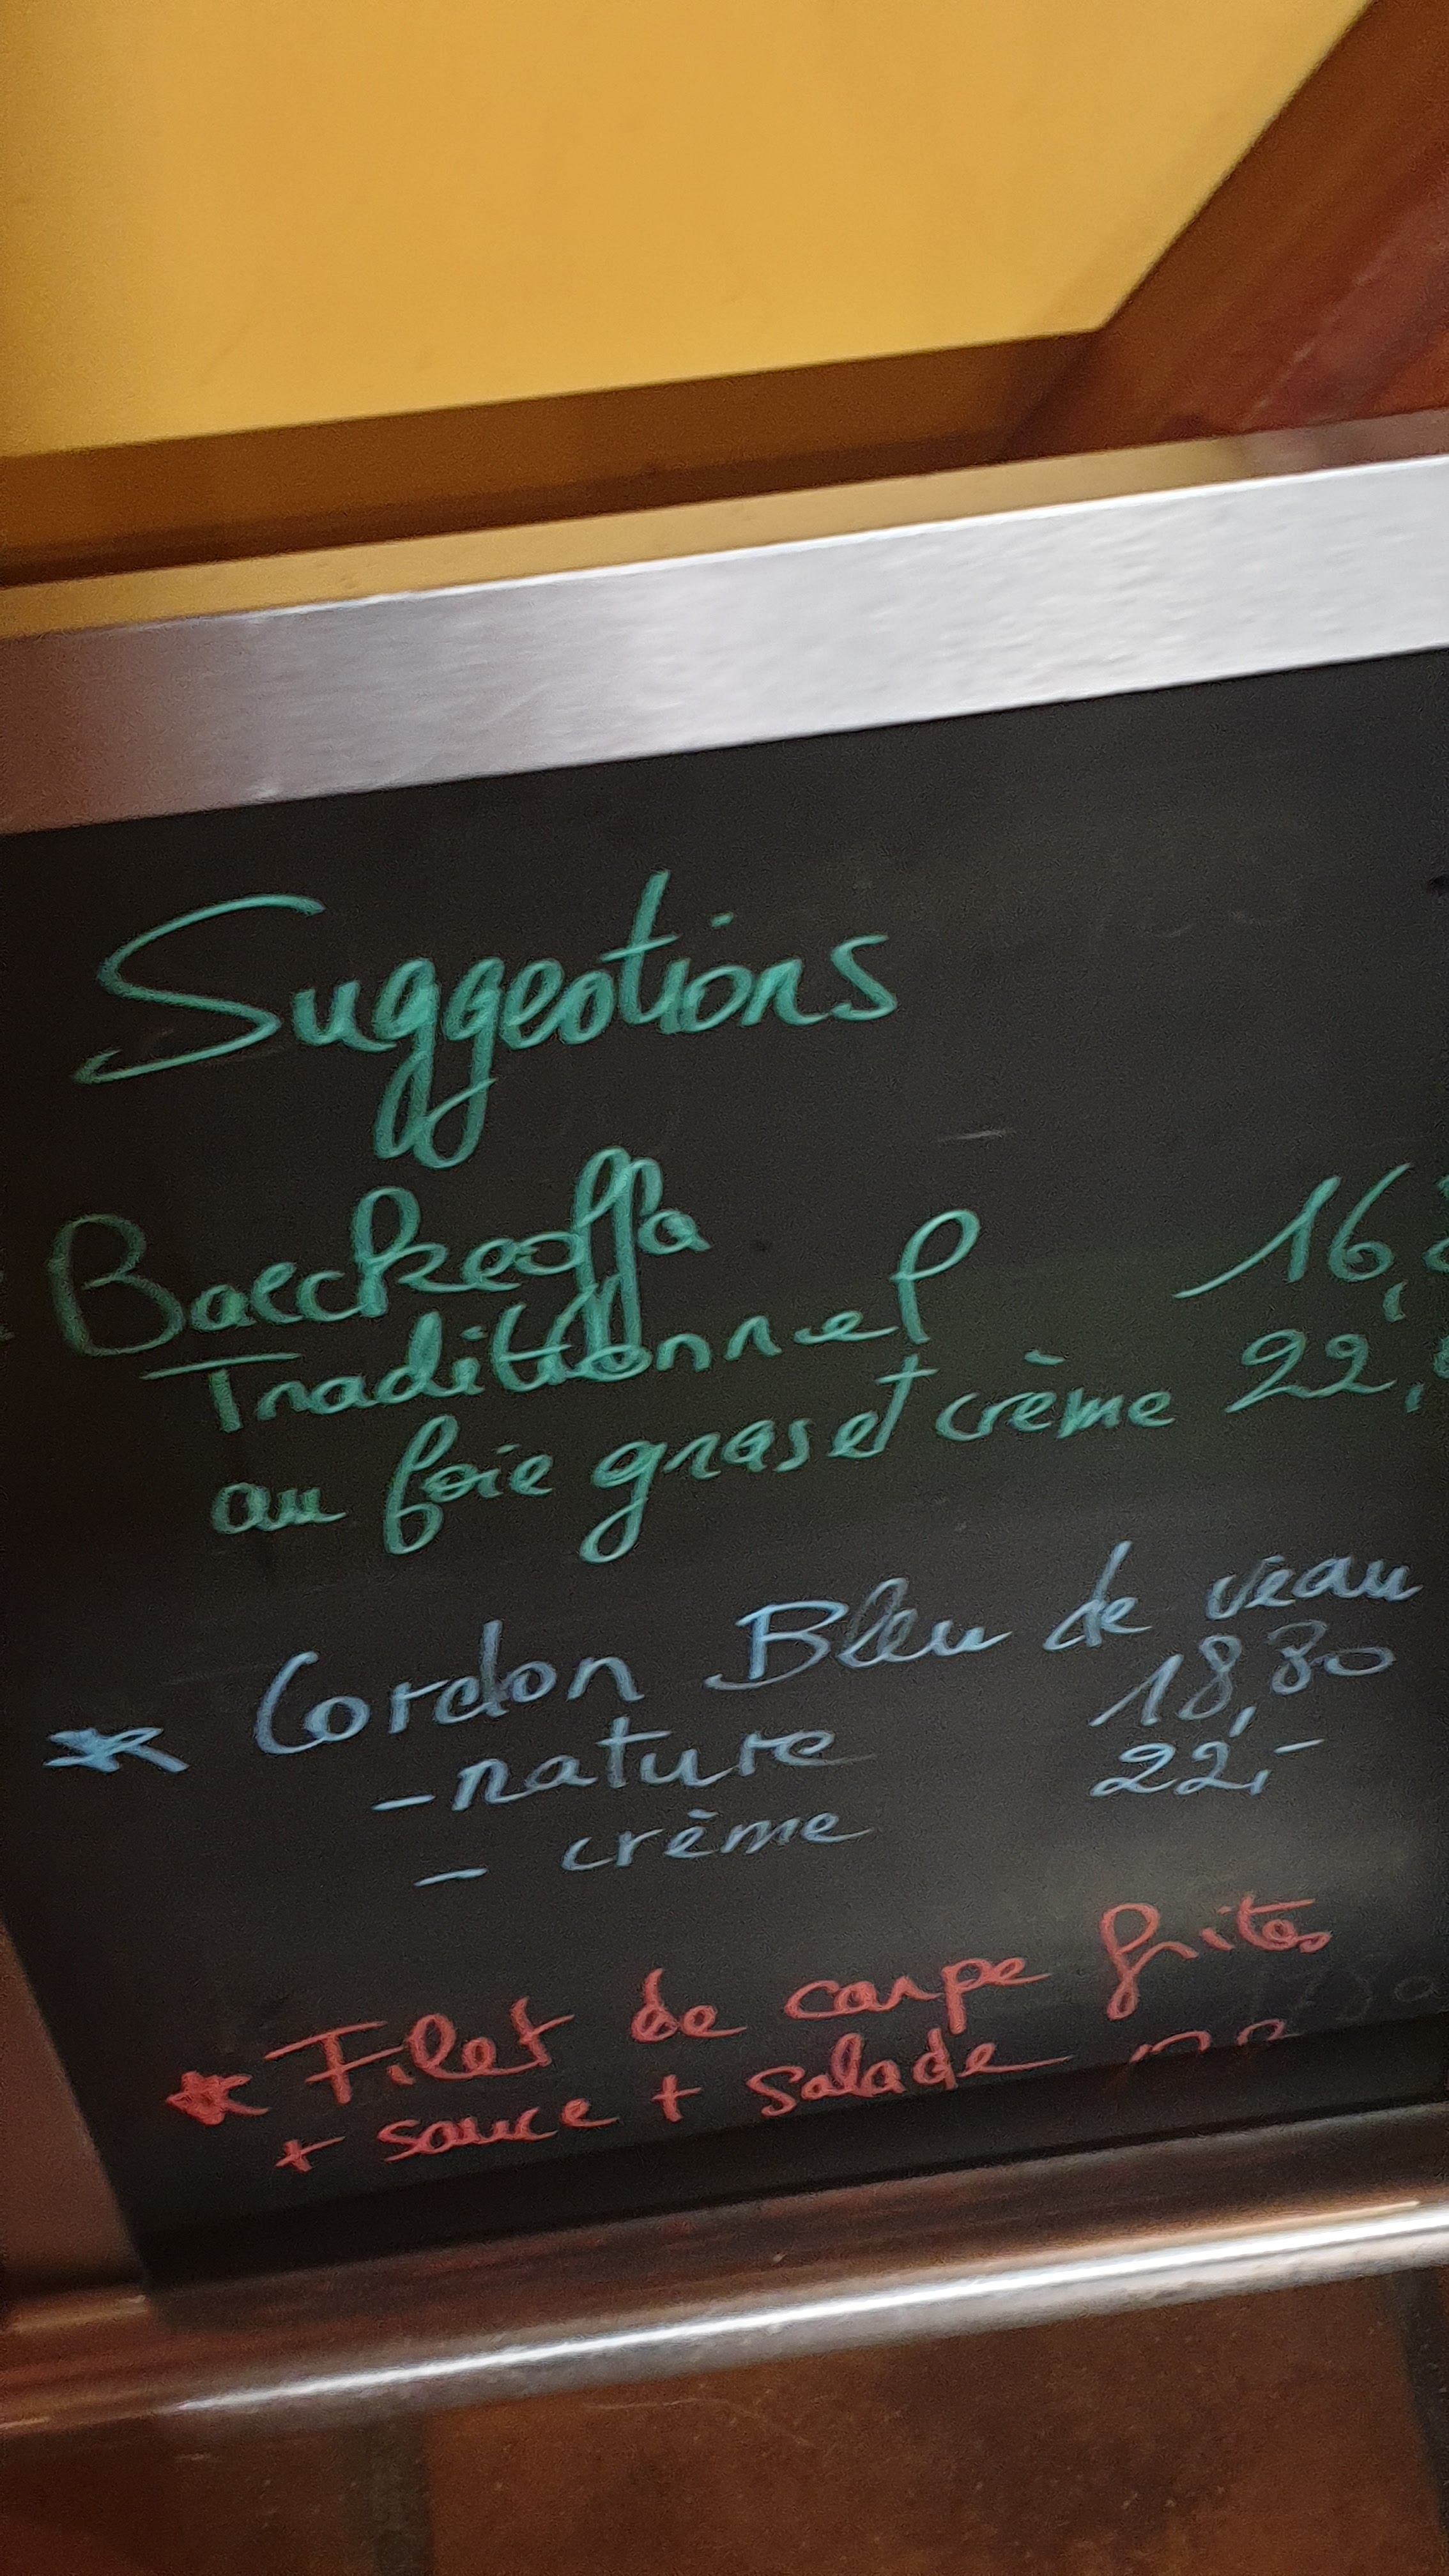 Suggestions
Baeckeoffa
Traditionnel 16,
au foie gras et crème 22,
* Cordon Bleu de veau
- nature 18,80
- crème 22,-
* Filet de carpe frites
+ sauce + salade